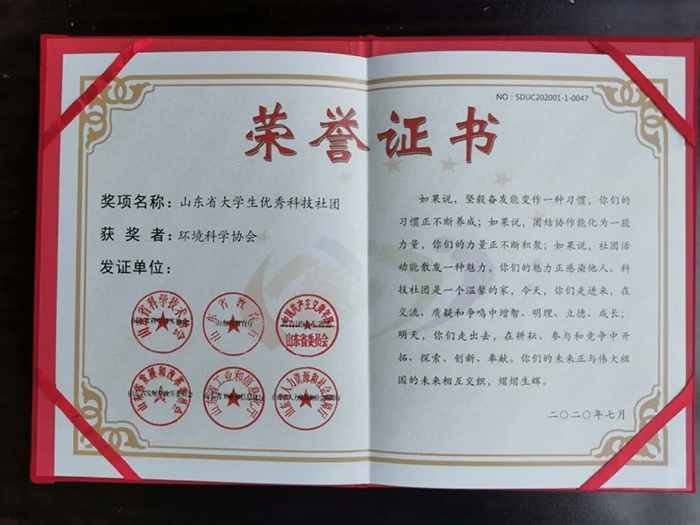 NO：SDUC202001-1-0047
荣誉证书
奖项名称：山东省大学生优秀科技社团
获奖者：环境科学协会
发证单位：
山东省科学技术协会
山东省教育厅
山东省委员会
山东省发展和改革委员会
山东省工业和信息化厅
山东省人力资源和社会保障厅
如果说，坚毅奋发能变作一种习惯，你们的
习惯正不断养成；如果说，团结协作能化为一股
力量，你们的力量正不断积聚；如果说，社团活
动能散发一种魅力，你们的魅力正感染他人。科
技社团是一个温馨的家，今天，你们走进来，在
交流、质疑和争鸣中增智、明理、立德、成长；
明天，你们走出去，在耕耘、参与和竞争中开
拓、探索、创新、奉献。你们的未来正与伟大祖
国的未来相互交织，熠熠生辉。
二〇二〇年七月